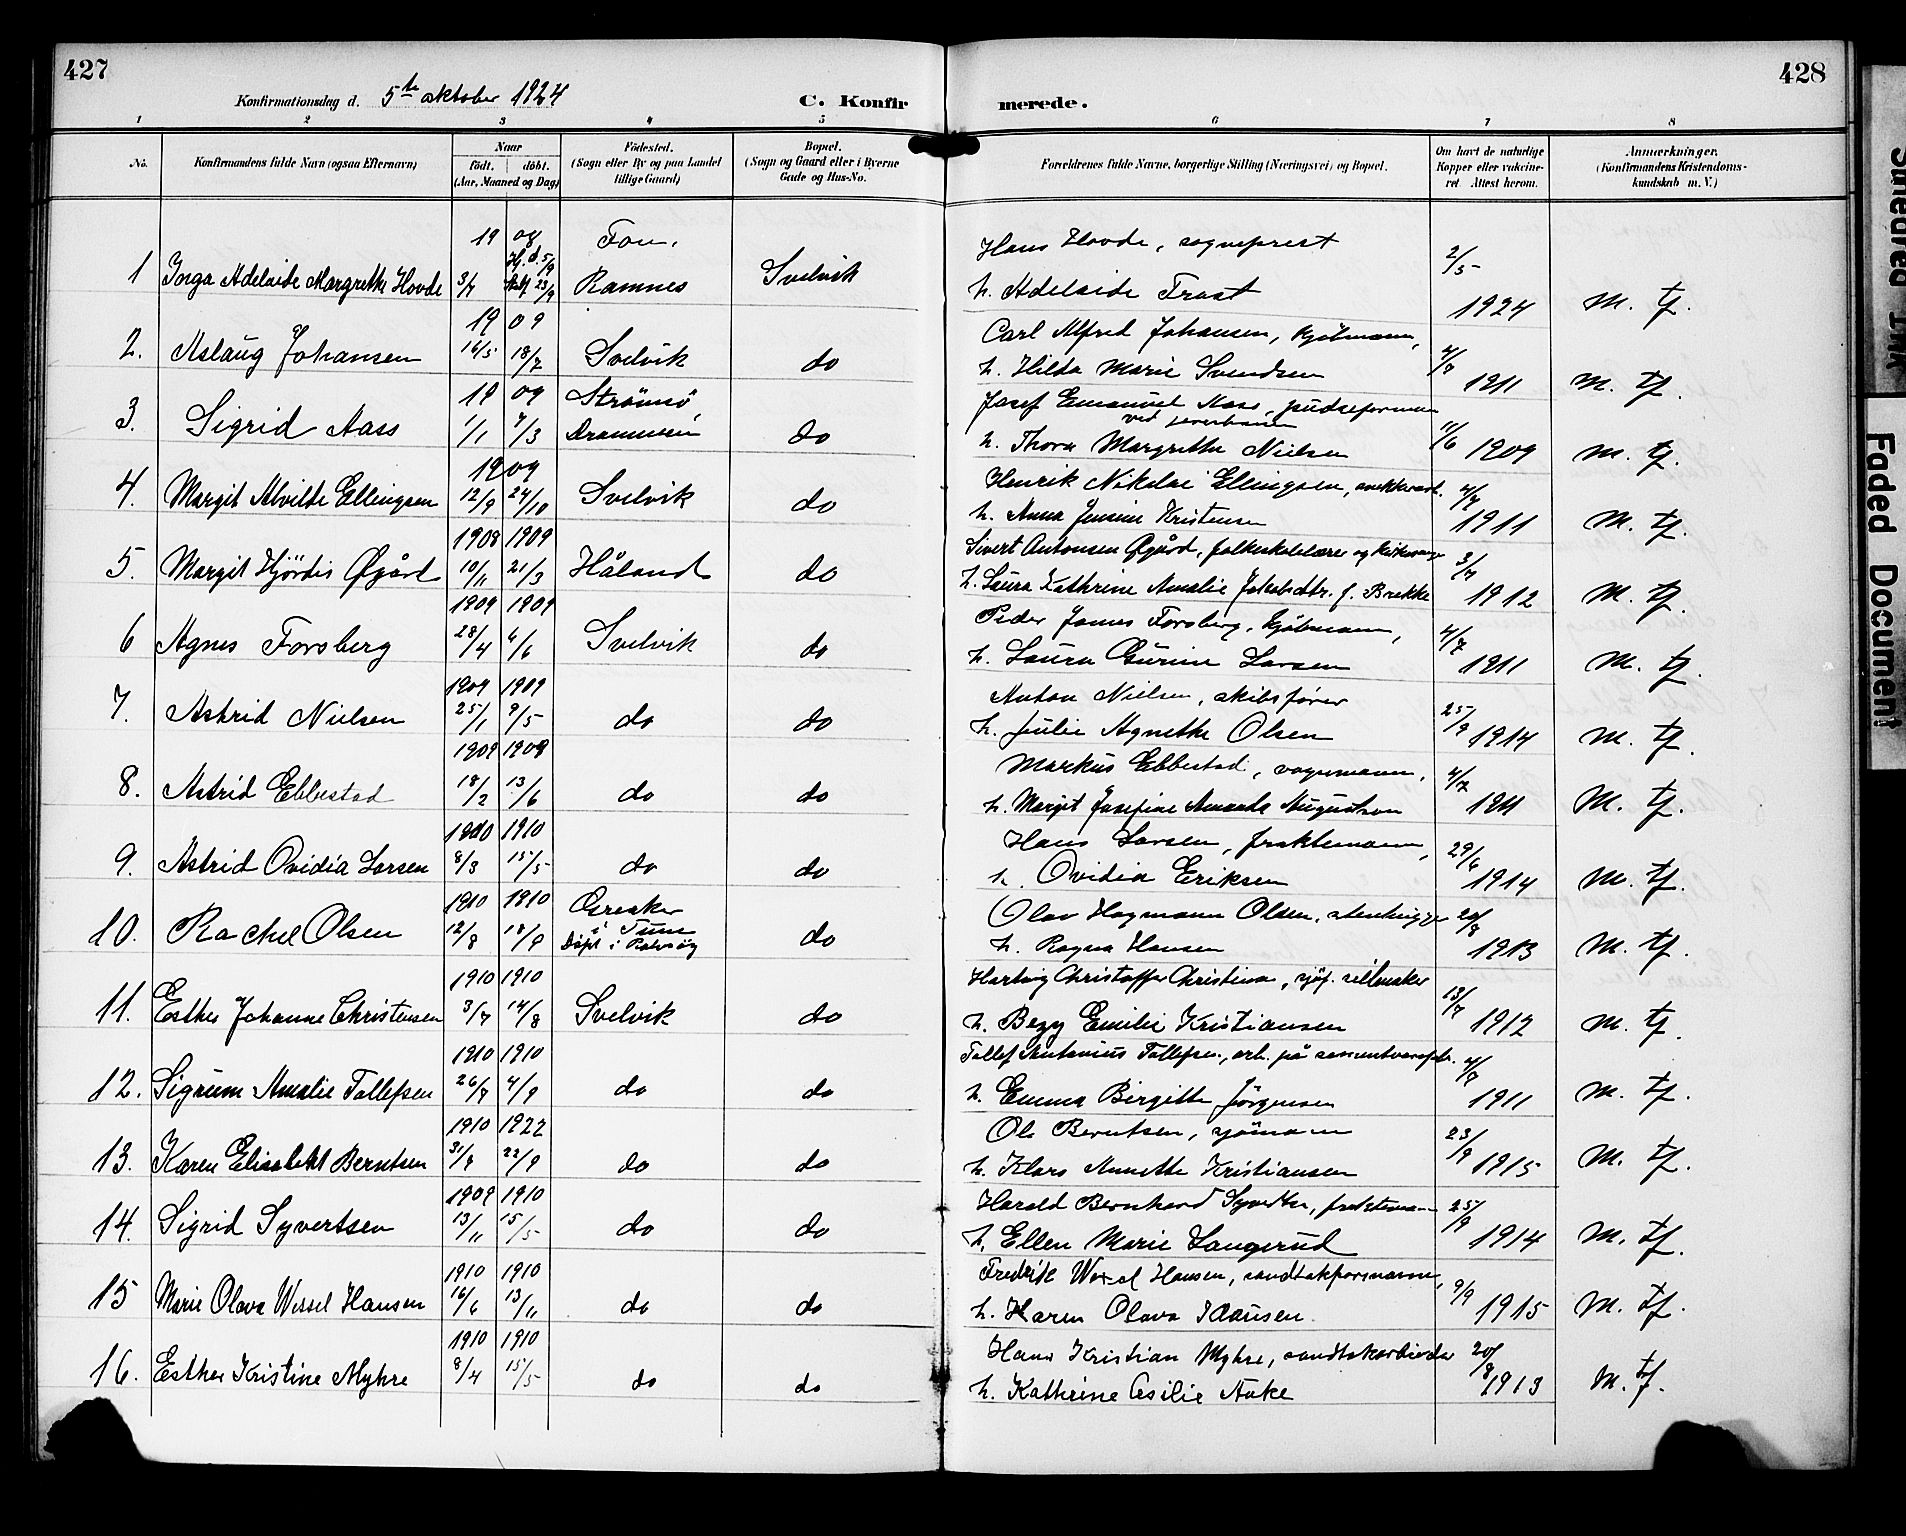 427
428
Konfirmationsdag d. 5te oktober 1924
C. Konfirmerede.
1 2 3 4 5 6 7 8
No.
Konfirmandens fulde Navn (ogsaa Efternavn)
Naar
født. døbt.
(Aar, Maaned og Dag)
Fødested.
(Sogn eller By og paa Landet
tillige Gaard)
Bopæl.
(Sogn og Gaard eller i Byerne
Gade og Hus-No.
Forældrenes fulde Navne, borgerlige Stilling (Næringsvei) og Bopæl.
Om havt de naturlige
Kopper eller vakcine-
ret Attest herom.
Anmærkninger.
(Konfirmandens Kristendoms-
kundskab m. V.)
19 09 Fon, Hans Hovde, sogneprest 2/5
Hj. d. 5/9
1 Inga Adelaide Margrethe Hovde 3/7 23/9 Ramnes Svelvik h. Adelaide Trast 1924 M. tf.
19 09 Carl Alfred Johansen, kjøbmann,
2. Aslaug Johansen 16/5 18/7 Svelvik do h. Hilda Marie Svendsen 4/7 1911 M. tf.
19 09 Strömsö, Josef Emanuel Aass, pudseformann
ved jernbanen
3. Sigrid Aass 1/1 7/3 Drammen do h. Thora Margrethe Nielsen 11/6 1909 M. tf.
1909 Henrik Nikolai Ellingsen,
4. Margit Alvilde Ellingsen 12/9 24/10 Svelvik do h. Anna Jensine Kristensen 4/7 1911 M. tf.
1908 1909 Sivert Antonsen Øgård, folkeskolelærer og kirkesanger
5. Margit Hjördis Øgård 10/11 21/3 Håland do h. Laura Kathrine Amalie Jakobsdtr. f. Brekke 3/7 1912 M. tf.
1909 1909 Peder James Forsberg, kjøbmann,
6 Agnes Forsberg 28/4 6/6 Svelvik do h. Laura Gurine Larsen 4/7 1911 M. tf.
1909 1909 Anton Nielsen, skibsfører
7. Astrid Nielsen 25/1 9/5 do do h. Julie Agnethe Olsen 25/9 1914 M. tf.
1909 1909 Markus Ebbestad, vognmann,
8. Astrid Ebbestad 18/2 13/6 do do h. Margit Josefine Amanda Augustson 4/7 1911 M. tf.
1910 1910 Hans Larsen, fraktemann,
9. Astrid Ovidia Larsen 8/3 15/5 do do h. Ovidia Eriksen 29/6 1914 M. tf.
1910 1910 Greaker Olav Hagmann Olsen, stenhugger
i Tune
10. Rachel Olsen 12/8 18/9 Døpt i Rolvsöy do h. Ragna Hansen 20/8 1913 M. tf.
1910 1910 Hartvig Christoffer Christensen, sjöf. seilmaker
11. Esther Johanne Christensen 3/7 14/8 Svelvik do h. Bezy Emilie Kristiansen 13/7 1912 M. tf.
1910 1910 Tollef Antonius Tollefsen, arb. på sementvarefabr.
12. Sigrum Amalie Tollefsen 26/7 4/9 do do h. Emma Birgitte Jörgensen 4/7 1911 M. tf.
1910 1922 Ole Berntsen, sjömann
13. Karen Elisabeth Berntsen 31/8 22/9 do do h. Klara Annette Kristiansen 23/9 1915 M. tf.
1909 1910 Harald Bernhard Syvertsen, fraktemann
14. Sigrid Syvertsen 13/11 15/5 do do h. Ellen Marie Langerud 25/9 1914 M. tf.
1910 1910 Fredrik Wessel Hansen, sandtakformann,
15 Marie Olava Wessel Hansen 16/6 13/11 do do h. Karen Olava Klausen. 9/9 1915 M. tf.
1910 1910 Hans Kristian Myhre, sandtakarbeider
16. Esther Kristine Myhre 8/4 15/5 do do h. Kathrine Cesilie Aake 20/8 1913 M. tf.
Faded Document